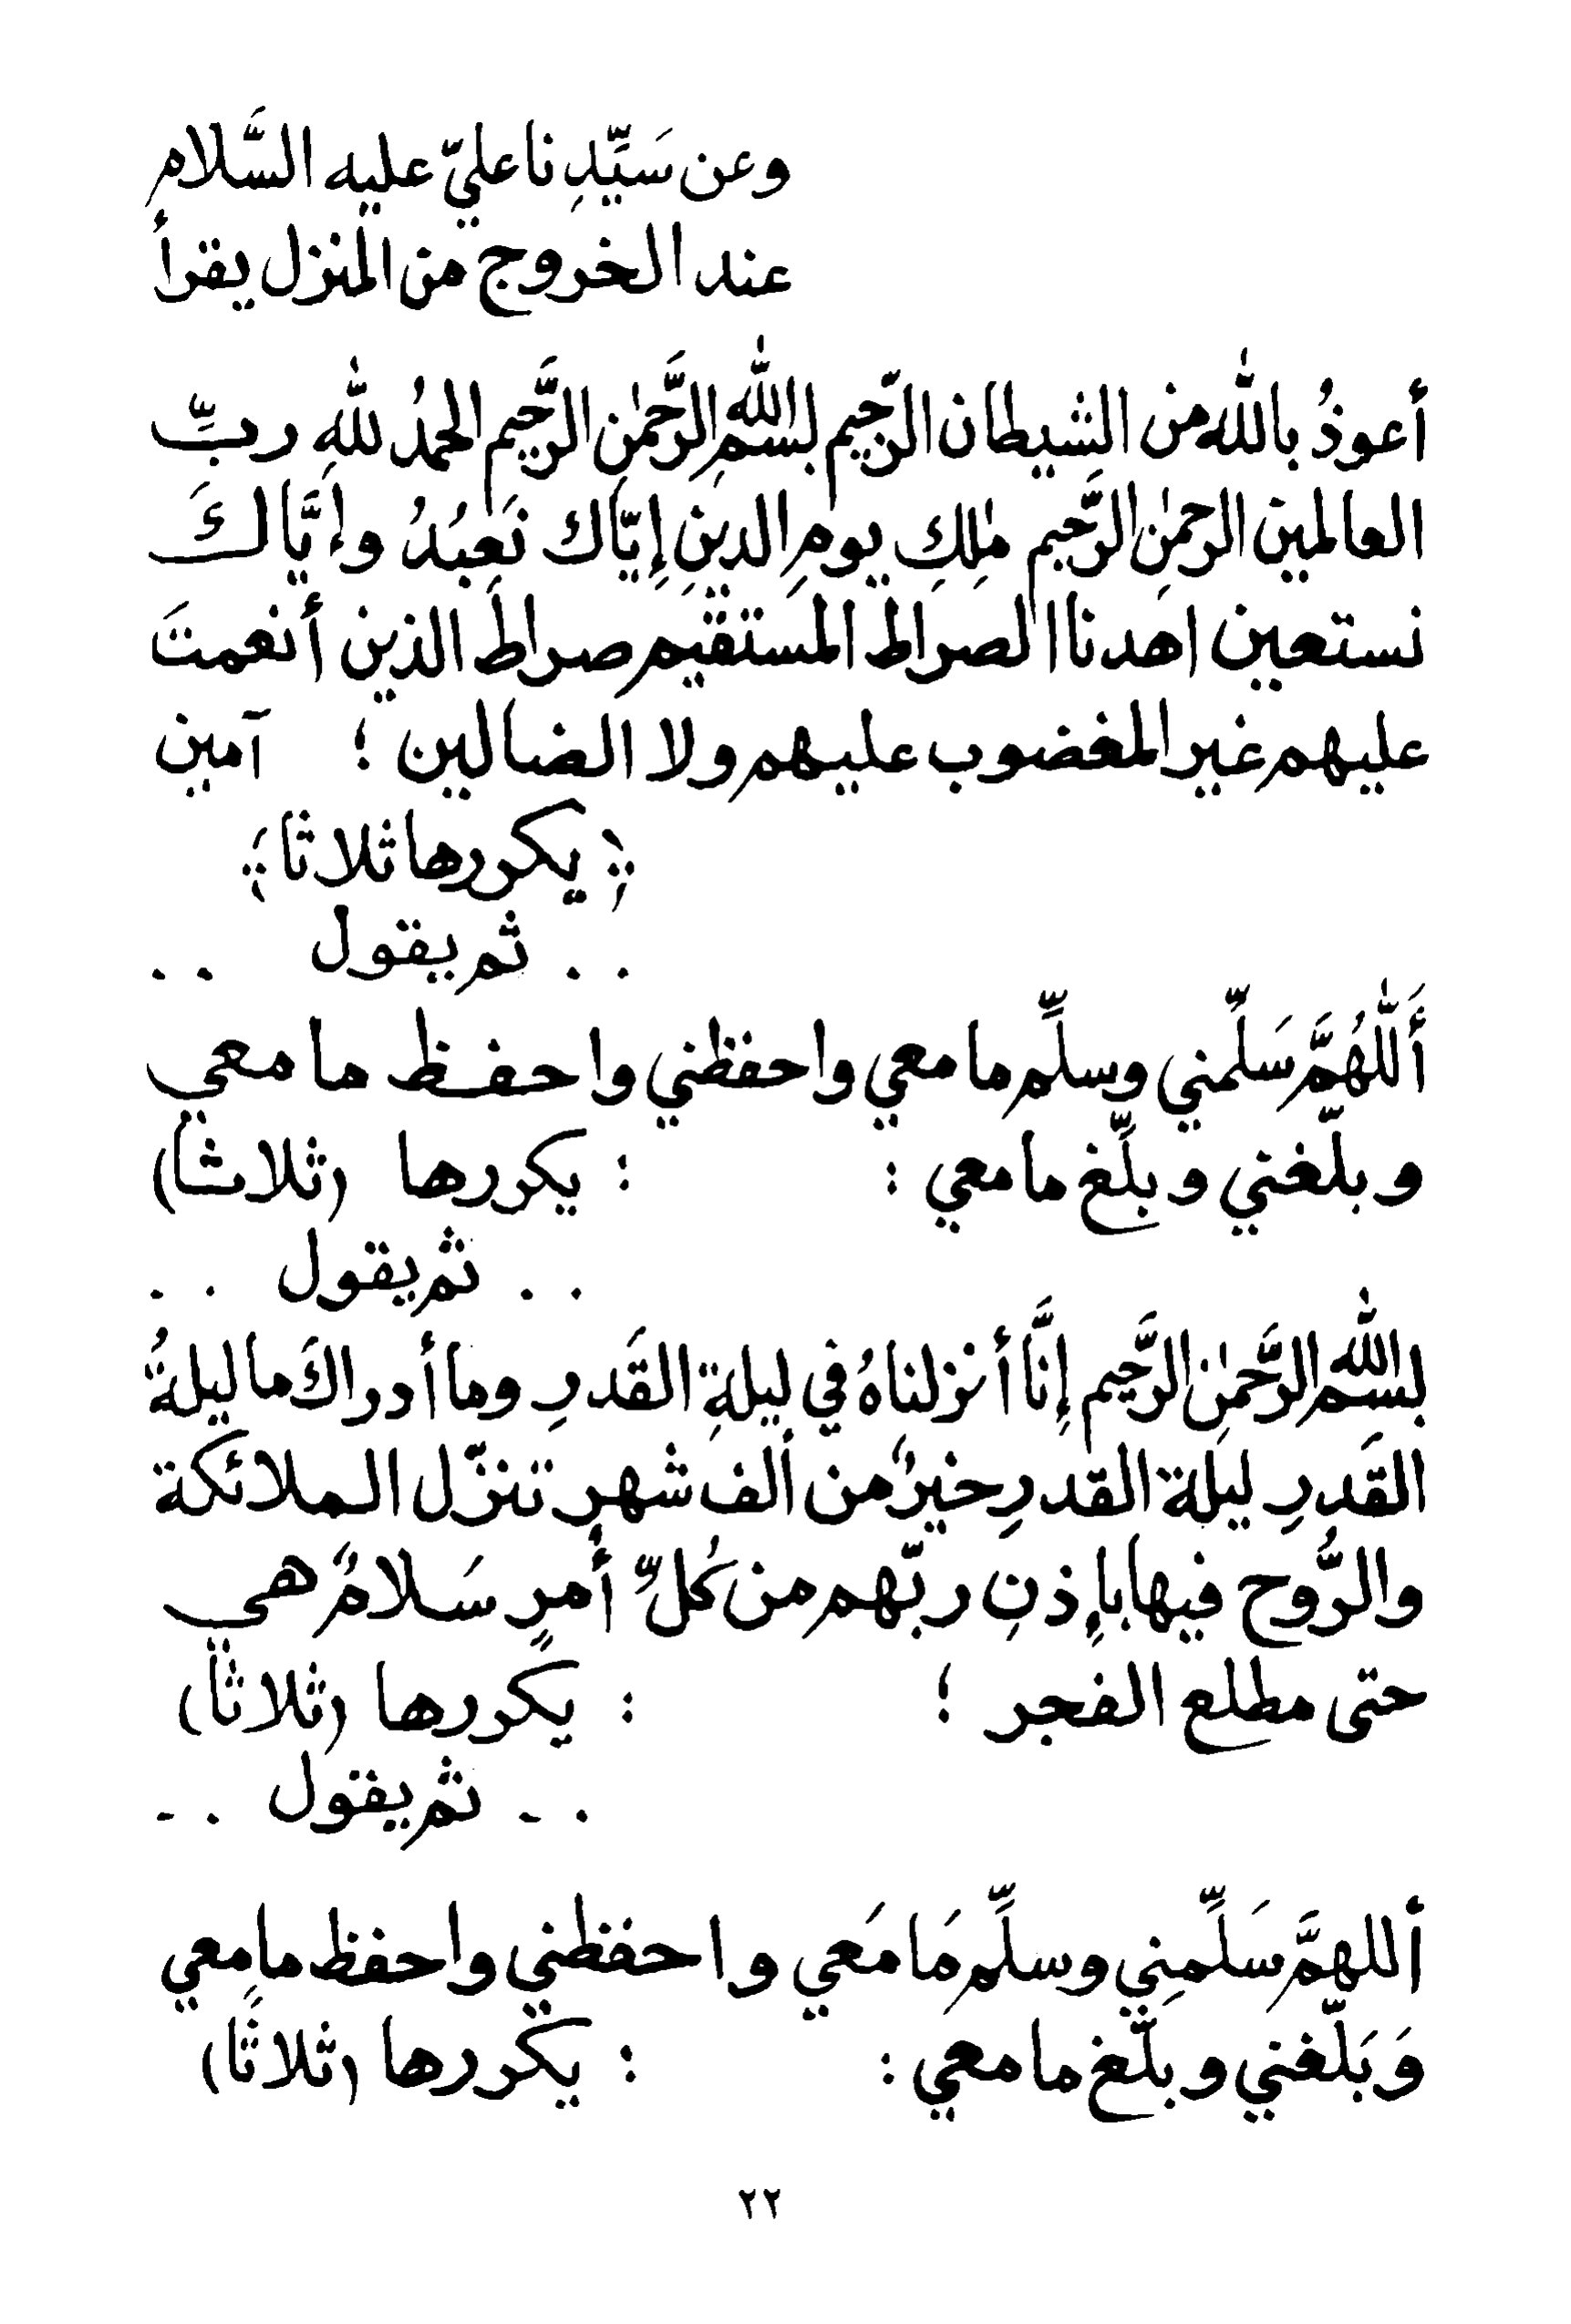 وعن سَيِّدِنا عليّ عليه السَّلام
عند الخروج من المنزل يقرأ
أعوذُ بالله من الشيطان الرّجيم بسم الله الرَّحمٰن الرَّحيم الحمدُ للهِ ربِّ
العالمين الرحمٰنِ الرَّحيم مٰلِكِ يومِ الدينِ إيّاك نَعبُدُ وإيَّاكَ
نستعين اهدنا الصراطَ المستقيَم صراطَ الذين أنعمتَ
عليهم غير المغضوب عليهم ولا الضالين ؛ آمين
﴿ يكررها ثلاثا ﴾
. . ثم يقول . .
أَللّٰهُمَّ سَلِّمني وسلِّم ما معي واحفظني واحفظ ما معي
وبلّغني وبلِّغ ما معي : : يكررها (ثلاثاً)
. . ثم يقول . .
بسم الله الرَّحمٰنِ الرَّحيم إِنَّا أنزلناهُ في ليلةِ القَدرِ وما أدراكَ ما ليلةُ
القَدرِ ليلَة القدرِ خيرٌ من ألف شهرٍ تنزّل الملائكة
والرُّوح فيها بإِذنِ ربّهم من كُلِّ أمرٍ سَلامٌ هي
حتى مطلع الفجر ؛ : يكررها (ثلاثاً)
. - ثم يقول . -
أللهمَّ سَلِّمِني وسلِّم مَا مَعي واحفظني واحفظ ما معي
وَبَلّغني وبلّغ ما معي : : يكررها (ثلاثًا)
٢٢